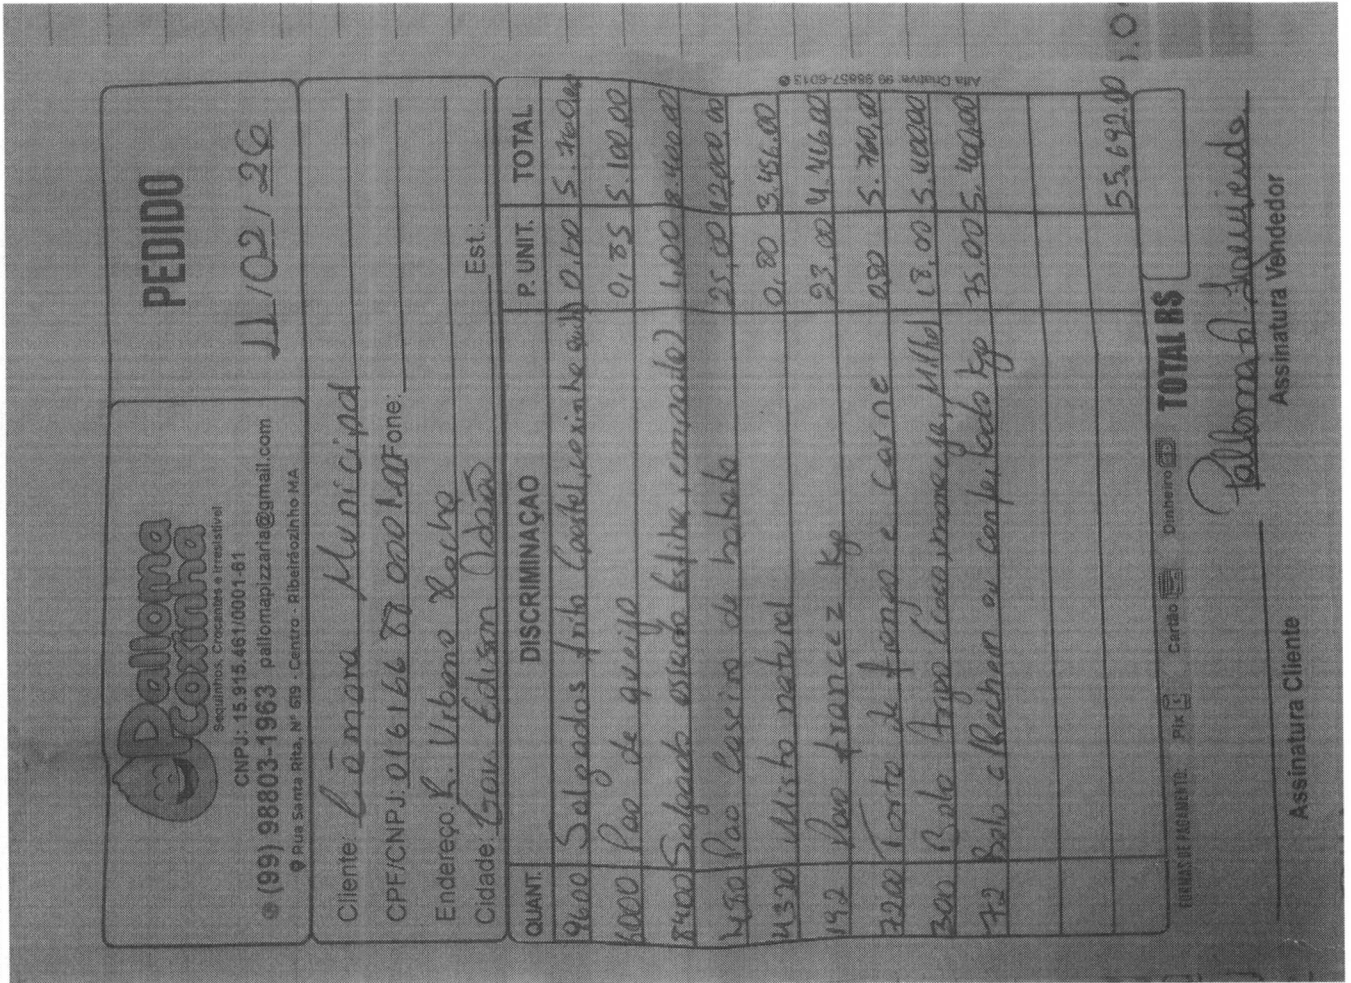 Palloma
Coxinha
Sequinhos, Crocantes e Irresistível
CNPJ: 15.915.461/0001-61
(99) 98803-1963 pallomapizzaria@gmail.com
Rua Santa Rita, Nº 619 - Centro - Ribeirãozinho-MA
PEDIDO
11/02/26
Cliente: Câmara Municipal
CPF/CNPJ: Fone:
Endereço: R. Urbano Rocha
Cidade: Gov. Edison Lobão Est.:
QUANT. DISCRIMINAÇÃO P. UNIT. TOTAL
9600 Salgados frito (pastel, coxinha 0,60 5.760,00
6000 Pao de queijo 0,85 5.100,00
8400 Salgado assado (esfiha, empada) 1,00 8.400,00
480 Pao Caseiro de batata 25,00 12.000,00
4320 Misto natural 0,80 3.456,00
192 Pao francez Kg 23,00 4.416,00
7200 Torta de frango e carne 0,80 5.760,00
300 Bolo (Coco, Milho) 18,00 5.400,00
72 Bolo c/Rechein ou confeitado Kg 75,00 5.400,00
55.692,00
FORMAS DE PAGAMENTO: Pix Cartão Dinheiro TOTAL R$
Palloma
Assinatura Cliente Assinatura Vendedor
Alfa Criativa: 99 98857-6013